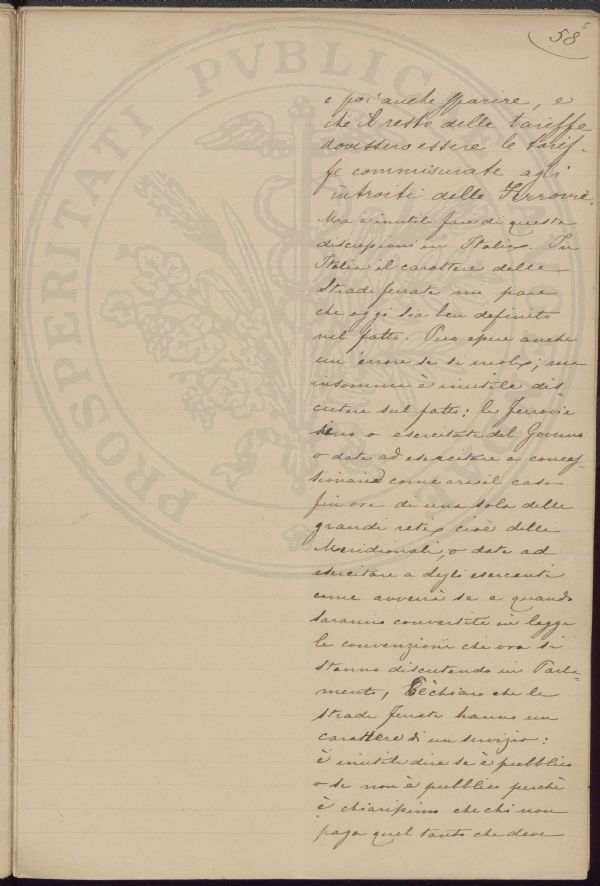 58
e poi anche sparire, e
che il resto delle tariffe
dovessero essere le tarif-
fe commisurate agli
introiti delle Ferrovie.
Ma è inutile fare di queste
discussioni in Italia. In
Italia il carattere delle
Strade ferrate mi pare
che oggi sia ben definito
nel fatto. Può essere anche
un errore se si vuole; ma
insomma è inutile dis
cutere sul fatto: le Ferrovie
sono o esercitate dal Governo
o date ad esercitare a conces-
sionari come era il caso
fin ora di una sola delle
grandi reti, cioè delle
Meridionali, o date ad
esercitare a degli esercenti
come avverrà se e quando
saranno convertite in legge
le convenzioni che ora si
stanno discutendo in Parla-
mento, È chiaro che le
strade ferrate hanno un
carattere di un servizio:
è inutile dire se è pubblico
o se non è pubblico perchè
è chiarissimo che chi non
paga quel tanto che deve
PROSPERITATI PVBLICAE